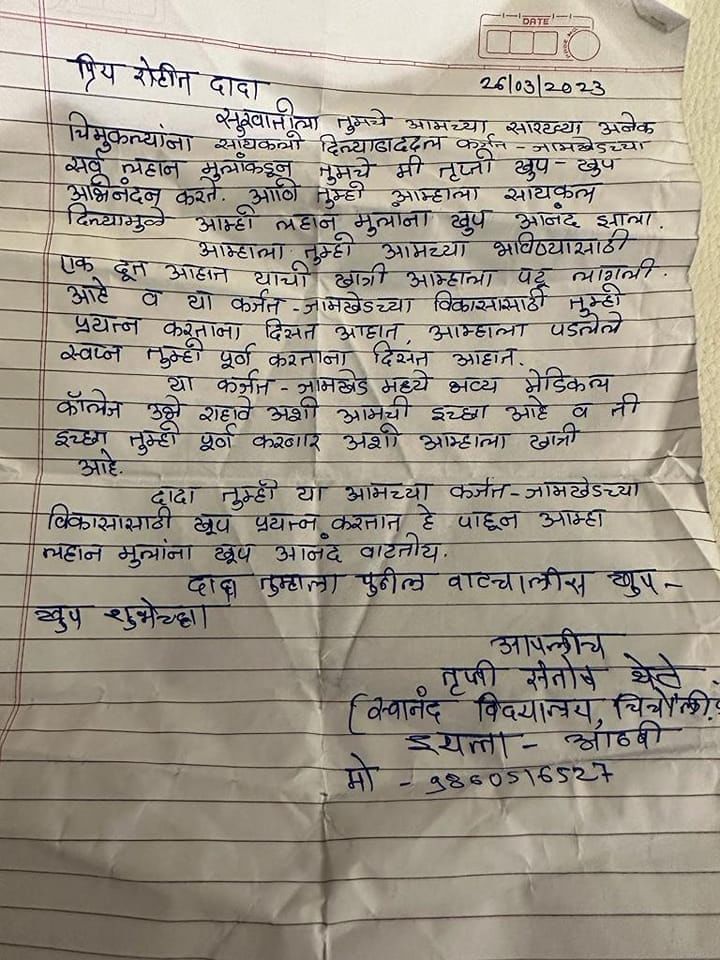 DATE
प्रिय रोहीत दादा 26/03/2023
सुरवातीला तुमचे आमच्या सारख्या अनेक
चिमुकल्यांना सायकली दिल्याबाददल कर्जत - जामखेडच्या
सर्व लहान मुलांकडून तुमचे मी तृप्ती खुप - खुप
अभिनंदन करते. आणि तुम्ही आम्हाला सायकल
दिल्यामुळे आम्ही लहान मुलांना खुप आनंद झाला.
आम्हाला तुम्ही आमच्या भविष्यासाठी
एक दूत आहात याची खात्री आम्हाला पटू लागली
आहे व या कर्जत - जामखेडच्या विकासासाठी तुम्ही
प्रयत्न करताना दिसत आहात, आम्हाला पडलेले
स्वप्न तुम्ही पूर्ण करताना दिसत आहात.
या कर्जत - जामखेड मध्ये भव्य मेडिकल
कॉलेज उभे राहावे अशी आमची इच्छा आहे व ती
इच्छा तुम्ही पूर्ण करणार अशी आम्हाला खात्री
आहे.
दादा तुम्ही या आमच्या कर्जत - जामखेडच्या
विकासासाठी खूप प्रयत्न करतात हे पाहून आम्हा
लहान मुलांना खूप आनंद वाटतोय.
दादा तुम्हाला पुढील वाटचालीस खुप -
खुप शुभेच्छा।
आपलीच
तृप्ती संतोष
(स्वानंद विद्यालय, चिंचोली.
इयत्ता - आठवी
मो - 9860516527